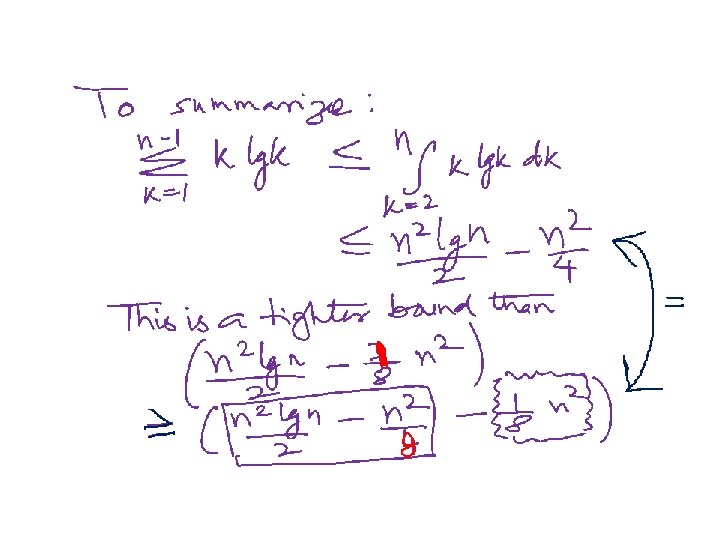 To summarize:
n-1 ∑ k=1 k lgk ≤ n ∫ k=2 k lgk dk
≤ n² lgn / 2 - n² / 4
=
This is a tighter bound than
(n² lg n / 2 - 1/8 n²)
≥ (n² lgn / 2 - n² / 8 - 1/8 n²)